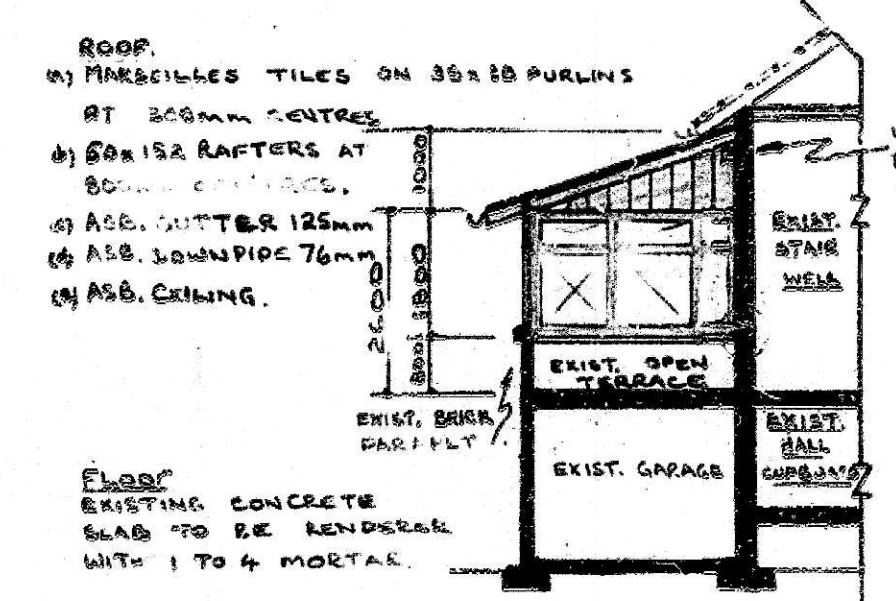 ROOF.
a) MARSEILLES TILES ON 38x 80 PURLINS
AT 300mm CENTRES
b) 50x152 RAFTERS AT
c) ASB. GUTTER 125mm
d) ASB. DOWNPIPE 76mm
e) ASB. CEILING.
EXIST.
STAIR
WELL
EXIST. OPEN
TERRACE
EXIST. BRICK
PARAPET
EXIST.
HALL
CUPBOARD
EXIST. GARAGE
FLOOR
EXISTING CONCRETE
SLAB TO BE RENDERED
WITH 1 TO 4 MORTAR.